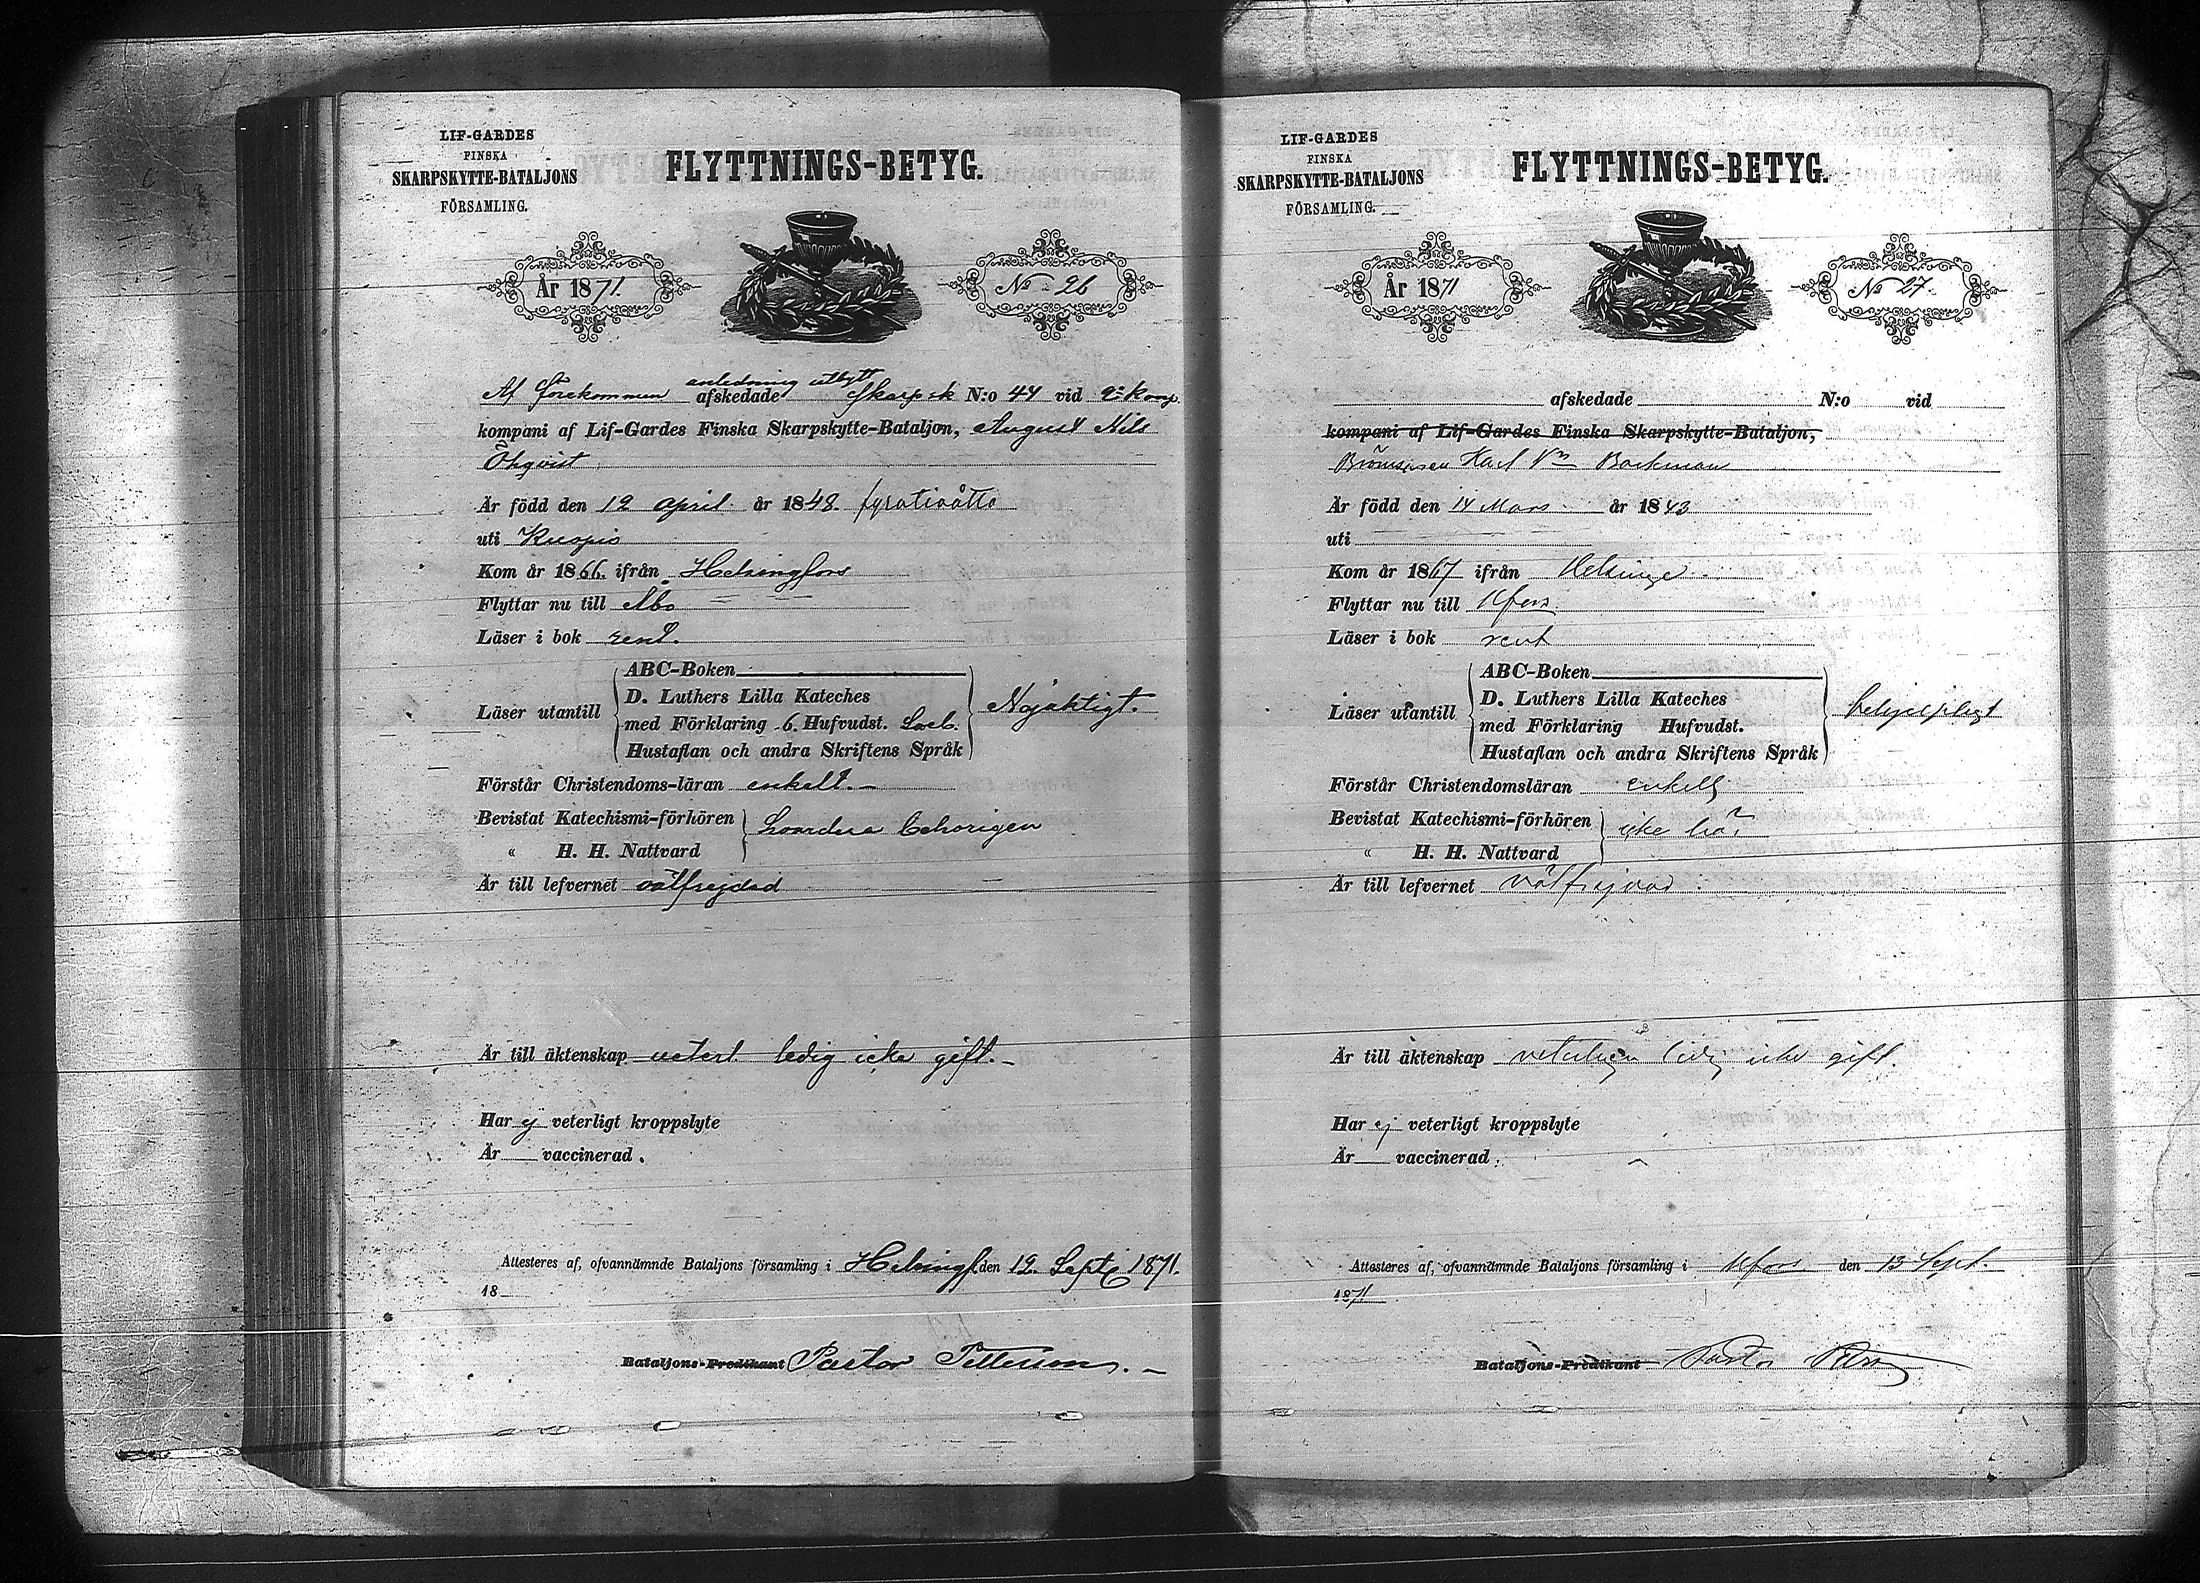 LIF-GARDES
FINSKA
SKARPSKYTTE-BATALJONS
FÖRSAMLING.
FLYTTNINGS-BETYG.
År 1871.
No 26
Af förekommen anledning utbytt
afskedade Skarpsk N:o 44 vid 2:a Komp.
kompani af Lif-Gardes Finska Skarpskytte-Bataljon, August Nils
Öhqvist
Är född den 12 April år 1848. fyratioåtta
uti Kuopio
Kom år 1866. ifrån Helsingfors
Flyttar nu till Åbo
Läser i bok rent.
ABC-Boken
D. Luthers Lilla Kateches
Läser utantill
med Förklaring 6. Hufvudst.
Hustaflan och andra Skriftens Språk
Nöjaktigt.
Förstår Christendoms-läran enkelt.
Bevistat Katechismi-förhören
« H. H. Nattvard
behörigen
Är till lefvernet välfrejdad
Är till äktenskap veterl ledig icke gift.
Har ej veterligt kroppslyte
Är vaccinerad.
Attesteres af, ofvannämnde Bataljons församling i Helsingf. den 12. Sept. 1871.
18
Bataljons-Predikant Pastor Petterson.
LIF-GARDES
FINSKA
SKARPSKYTTE-BATALJONS
FÖRSAMLING.
FLYTTNINGS-BETYG.
År 1871
No 27.
afskedade N:o vid
kompani af Lif-Gardes Finska Skarpskytte-Bataljon,
Karl Vm Backman
Är född den 14 Mars år 1843
uti
Kom år 1867 ifrån Helsinge
Flyttar nu till Hfors
Läser i bok rent
ABC-Boken
D. Luthers Lilla Kateches
Läser utantill
med Förklaring Hufvudst.
Hustaflan och andra Skriftens Språk
behjelpligt
Förstår Christendomsläran enkelt
Bevistat Katechismi-förhören
« H. H. Nattvard
icke här
Är till lefvernet välfrejdad.
Är till äktenskap veterligen ledig icke gift.
Har ej veterligt kroppslyte
Är vaccinerad.
Attesteres af, ofvannämnde Bataljons församling i Hfors den 13 Sept.
1871
Bataljons-Predikant Pastor